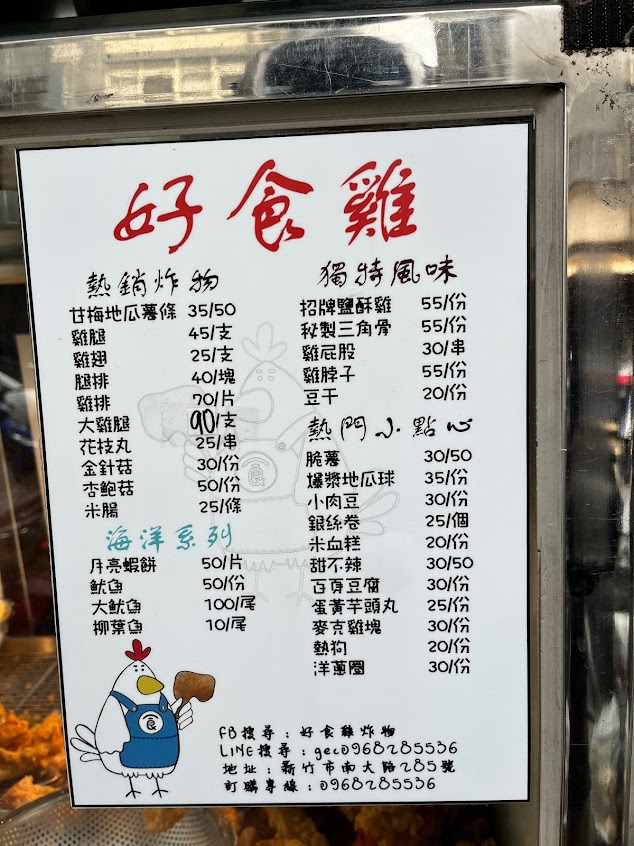 好食雞
熱銷炸物
甘梅地瓜薯條 35/50
雞腿 45/支
雞翅 25/支
腿排 40/塊
雞排 70/片
大雞腿 90/支
花枝丸 25/串
金針菇 30/份
杏鮑菇 50/份
米腸 25/條
海洋系列
月亮蝦餅 50/片
魷魚 50/份
大魷魚 100/尾
柳葉魚 10/尾
獨特風味
招牌鹽酥雞 55/份
秘製三角骨 55/份
雞屁股 30/串
雞脖子 55/份
豆干 20/份
熱門小點心
脆薯 30/50
爆漿地瓜球 35/份
小肉豆 30/份
銀絲卷 25/個
米血糕 20/份
甜不辣 30/50
百頁豆腐 30/份
蛋黃芋頭丸 25/份
麥克雞塊 30/份
熱狗 20/份
洋蔥圈 30/份
食
食
FB搜尋：好食雞炸物
LINE搜尋：gec0968285536
地址：新竹市南大路285號
訂購專線：0968285536